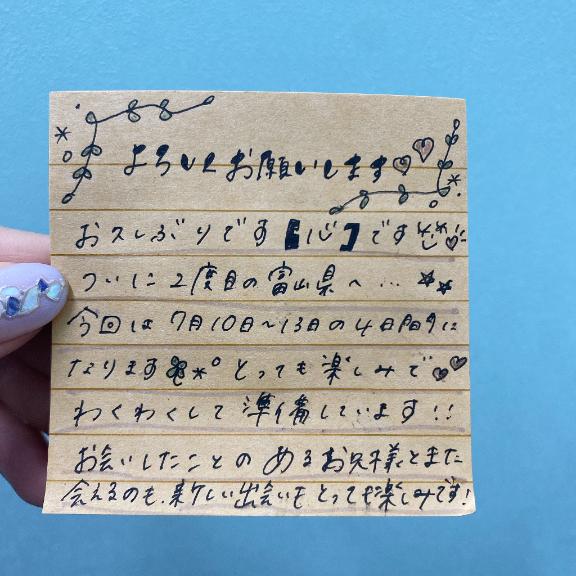 よろしくお願いします♡♡
お久しぶりです【心】です
ついに2度目の富山県へ…
今回は7月10日~13日の4日間に
なります とっても楽しみで♡♡
わくわくして準備しています!!
お会いしたことのあるお兄様とまた
会えるのも、新しい出会いもとっても楽しみです!